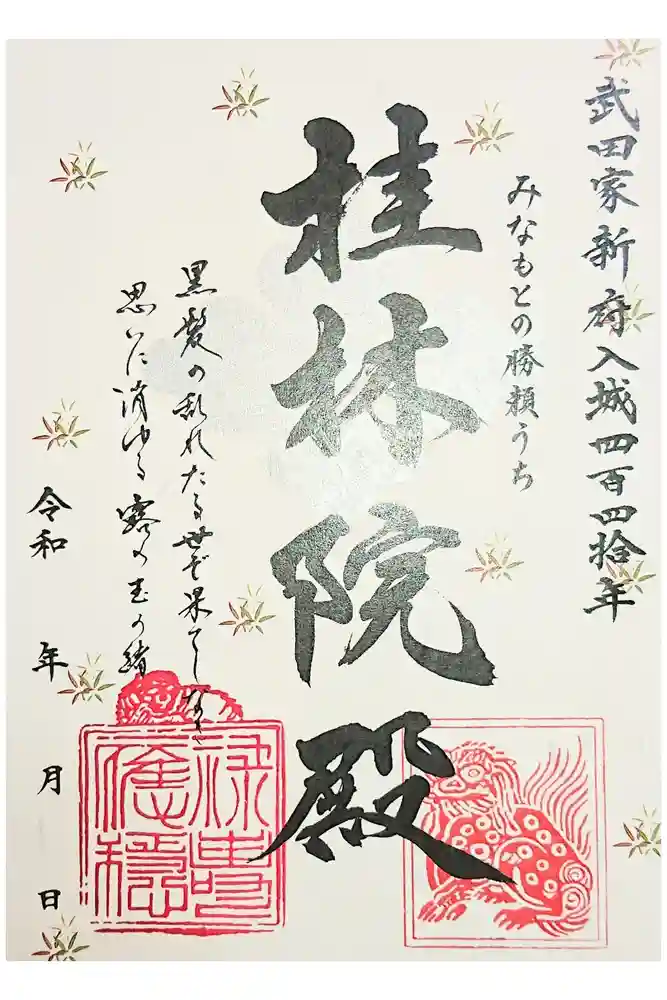 武田家新府入城四百四拾年
みなもとの勝頼うち
桂林院殿
黒髪の乱れたる世ぞ果てしなき
思いに消ゆる露の玉の緒
令和 年 月 日